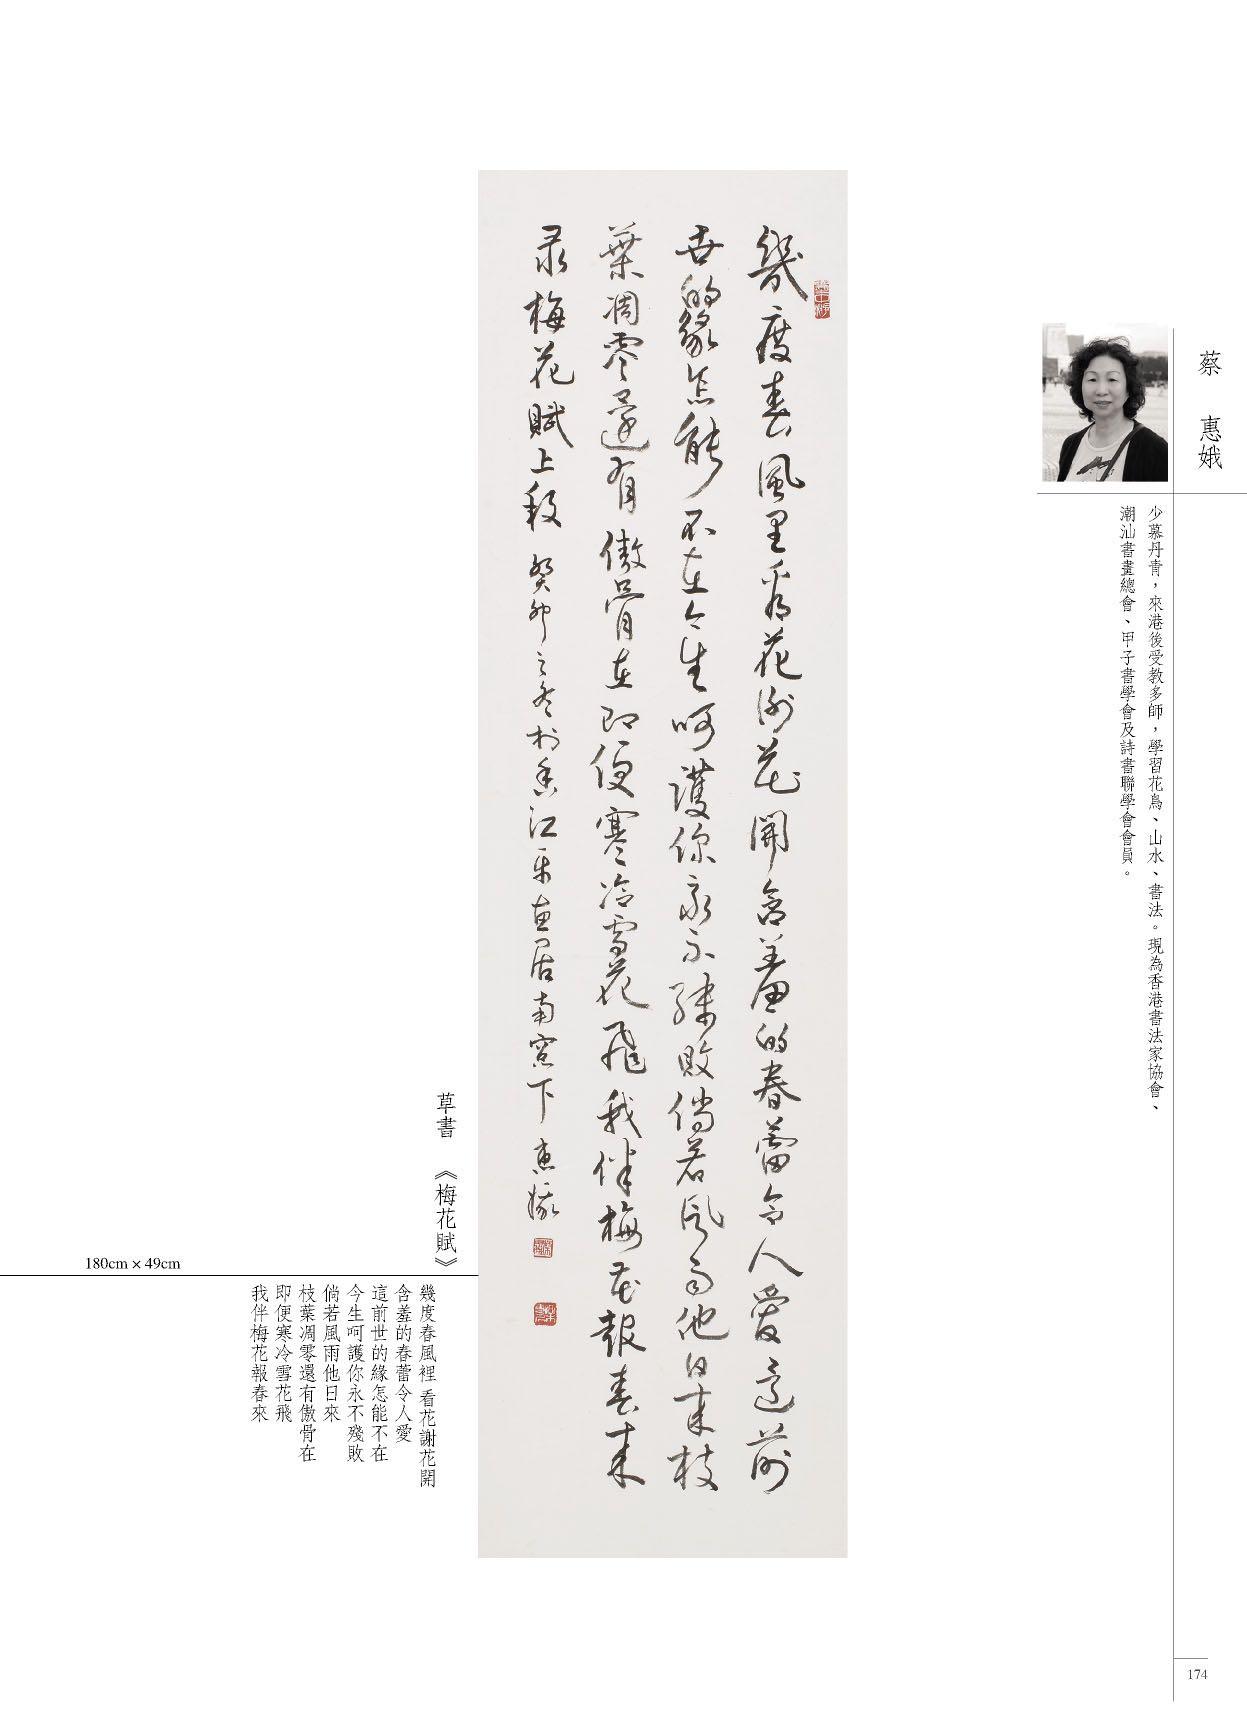 蔡 惠娥
少慕丹青，來港後受教多師，學習花鳥、山水、書法。現為香港書法家協會、
潮汕書畫總會、甲子書學會及詩書聯學會會員。
幾度春風里看花謝花開含羞的春蕾令人愛這前
世的緣怎能不在今生呵護你永不殘敗倘若風雨他日來枝
葉凋零還有傲骨在即便寒冷雪花飛我伴梅花報春来
录梅花賦上段 癸卯之冬於香江 居南窓下 惠娥
草書 《梅花賦》
180cm × 49cm
幾度春風裡 看花謝花開
含羞的春蕾令人愛
這前世的緣怎能不在
今生呵護你永不殘敗
倘若風雨他日來
枝葉凋零還有傲骨在
即便寒冷雪花飛
我伴梅花報春來
174